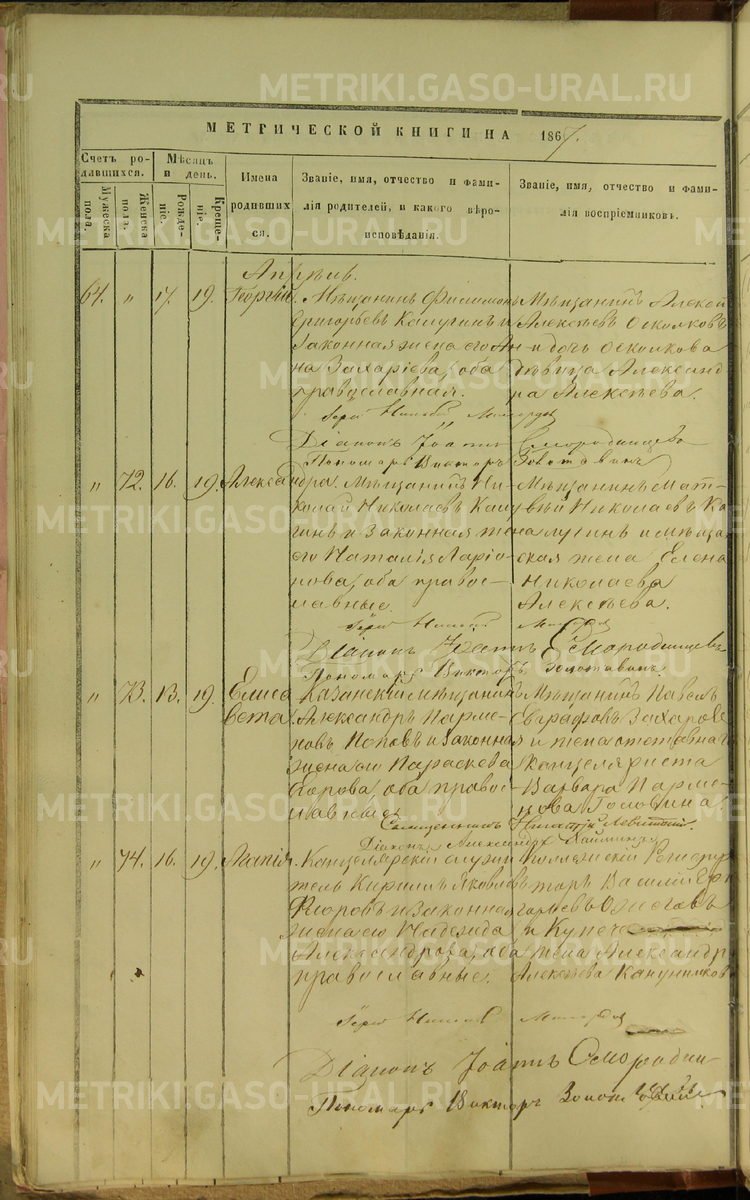 METRIKI.GASO-URAL.RU
МЕТРИЧЕСКОЙ КНИГИ НА 1867.
Счетъ родавшихся.
Мужеска пола.
Женска пола.
Мѣсяцъ и день.
Рожденіе.
Крещеніе.
Имена родившихся.
Званіе, имя, отчество и фамилія родителей, и какого вѣроисповѣданія.
Званіе, имя, отчество и фамилія воспріемниковъ.
Апрѣль.
64. " 17. 19. Георгій.
Мѣщанинъ Филимонъ
Григорьевъ Калугинъ и
законная жена его Анна
Захаріева, оба
православная.
Мѣщанинъ Алексѣй
Алексѣевъ Осколковъ
и дочь Осколкова
дѣвица Александра
Алексѣева.
Діаконъ Іоаннъ Смородинцевъ
Пономарь Викторъ
" 72. 16. 19. Александра.
Мѣщанинъ Николай
Николаевъ Калугинъ
и законная жена
его Наталія Ларіонова,
оба православные.
Мѣщанинъ Матвѣй
Николаевъ Калугинъ
и мѣщанская
жена Елена
Николаева
Алексѣева.
Діаконъ Іоаннъ Смородинцевъ
Пономарь Викторъ
" 73. 13. 19. Елисавета.
Казанскій мѣщанинъ
Александръ Парменовъ
Поповъ и законная
жена его Параскева
Егорова, оба православные.
Мѣщанинъ Павелъ
Евграфовъ Захаровъ
и жена отставнаго
канцеляриста
Варвара Парменова
Головина.
Священникъ Игнатій Левитскій.
Діаконъ Александръ
" 74. 16. 19. Агапія.
Канцелярскій служитель
Кириллъ Яковлевъ
Флоровъ и законная
жена его Надежда
Александрова, оба
православные.
Коллежскій Регистраторъ
Василій
и Купеч
жена Александра
Алексѣева
Діаконъ Іоаннъ Смородин
Пономарь Викторъ